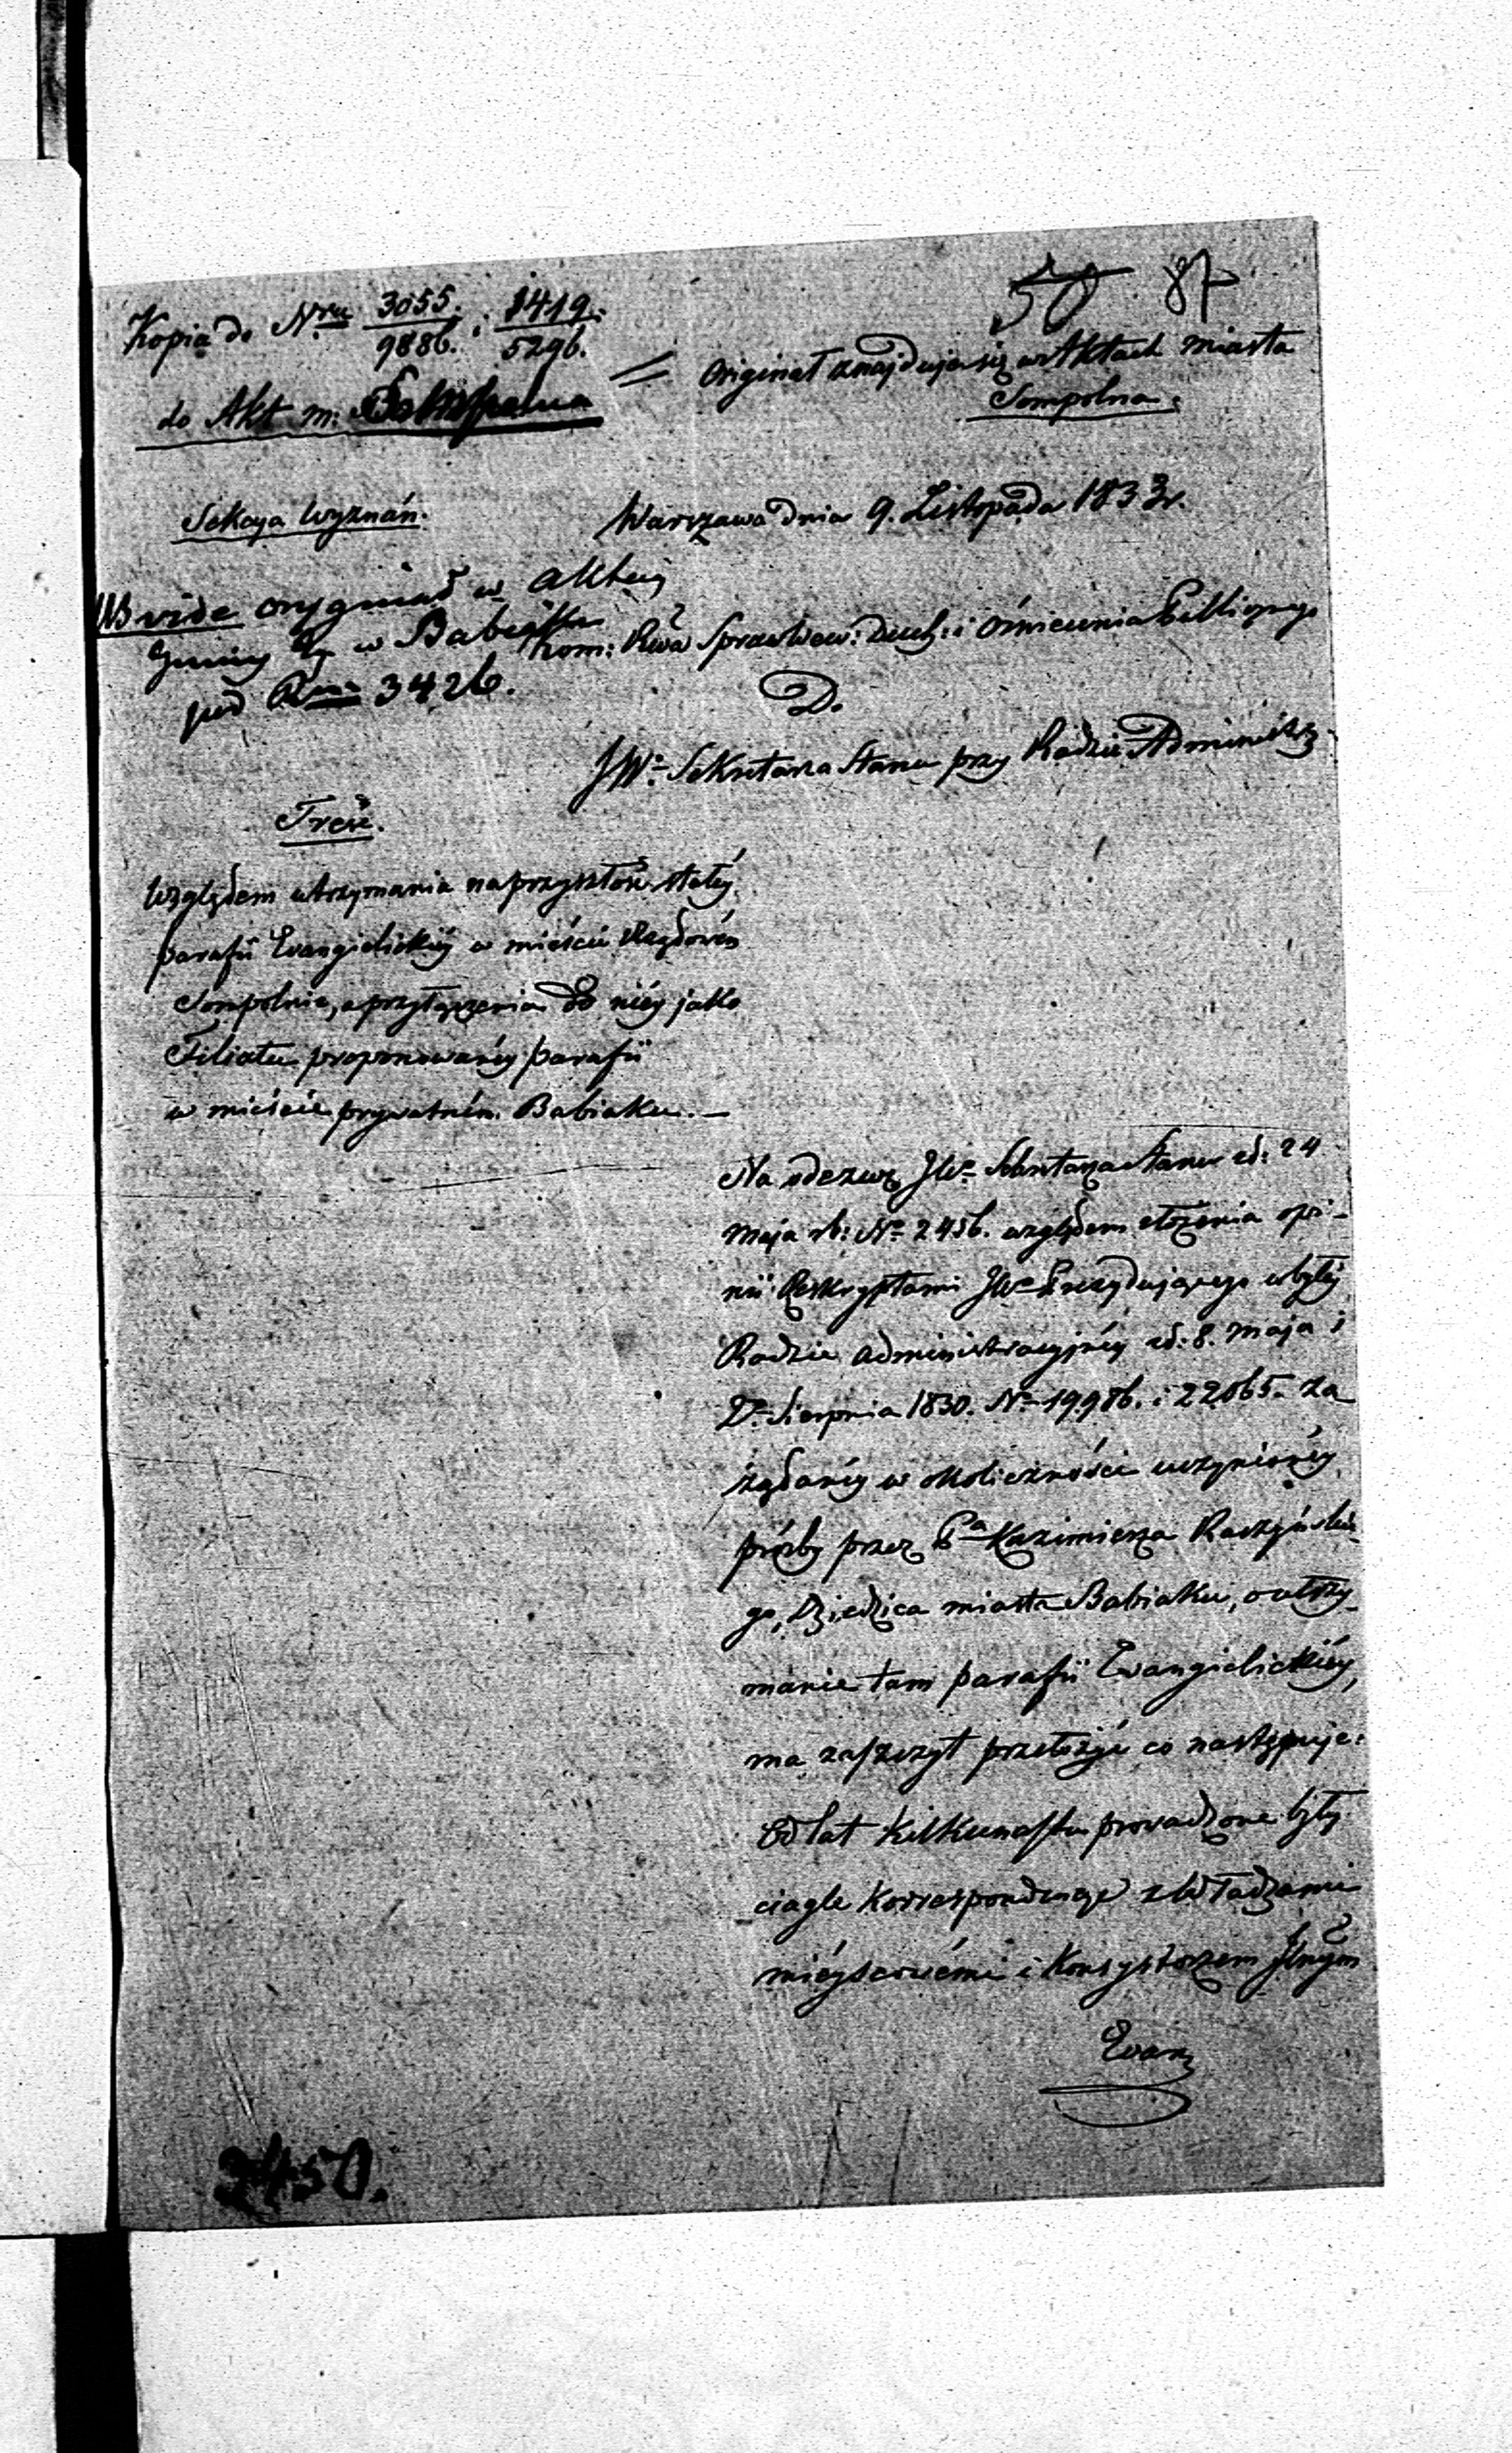 50 87
Kopia do Nru 3055./9886. i 1419./5296.
do Akt m: Sompolna
= Originał znajduje się w Aktach miasta
Sompolna.
Sekcya Wyznań.
Warszawa dnia 9. Listopada 1833 r.
NB vide oryginał w aktach
Gminy Ew. w Babiaku
pod Num 3426.
Kom: Rwa Spraw Wew: Duch: i Oświecenia Publicznego
Do
JW. Sekretarza Stanu przy Radzie Administr.
Treść.
Względem utrzymania na przyszłość stałéy
parafii Ewangielickiéy w mieście Rządowém
Sompolnie, a przyłączenia do niéy jako
Filiału proponowanéy parafii
w mieście prywatném Babiaku. —
Na odezwę JWo Sekretarza Stanu z d: 24
Maja rb: No 2456. względem złożenia opi-
nii Reskryptami JWo Prezydującego w byłéj
Radzie Administracyjnéy z d: 8. Maja i
2o Sierpnia 1830. No 19986. i 22065. za
żądanéy w okoliczności uczynionéy
prózby przez Pa Kazimierza Raczyńskie
go, Dziedzica miasta Babiaku, o utrzy-
manie tam parafii Ewangielickiéy,
ma zaszczyt przełożyć co następuje:
Od lat kilkunastu prowadzone były
ciągle korrespondencye z Władzami
miéyscowémi i Konsystorzem Jlnym
Ewan
2450.